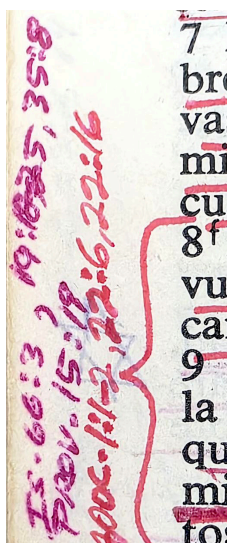 Is. 66:3, 19:18-25, 35:8
Prov. 15:19
Apoc. 1:1-2, 22:6, 22:16
7
bre
va
mi
cu
8 f
vu
can
9
la
qu
mi
tos